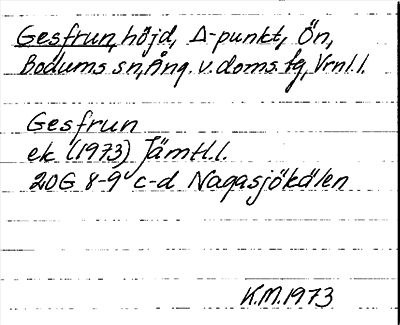 Gesfrun, höjd, Δ-punkt, Ön,
Bodums sn, Ång. v. doms. fg, Vrnl. l.
Gesfrun
ek (1973) Jämtl. l.
20G 8-9 c-d Nagasjökälen
K.M. 1973